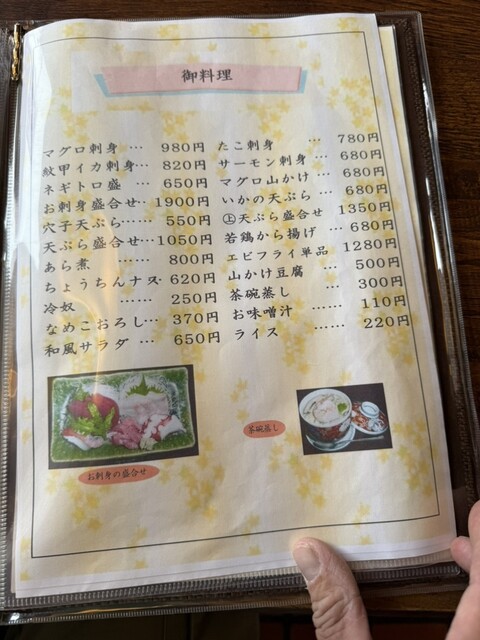 御料理
マグロ刺身 … 980円
紋甲イカ刺身… 820円
ネギトロ盛 … 650円
お刺身盛合せ‥1900円
穴子天ぷら…… 550円
天ぷら盛合せ…1050円
あら煮 …… 800円
ちょうちんナス‥620円
冷奴 …… 250円
なめこおろし… 370円
和風サラダ … 650円
たこ刺身 … 780円
サーモン刺身 … 680円
マグロ山かけ… 680円
いかの天ぷら ‥ 680円
㊤天ぷら盛合せ 1350円
若鶏から揚げ ‥ 680円
エビフライ単品 1280円
山かけ豆腐 … 500円
茶碗蒸し … 300円
お味噌汁 …… 110円
ライス …… 220円
お刺身の盛合せ
茶碗蒸し